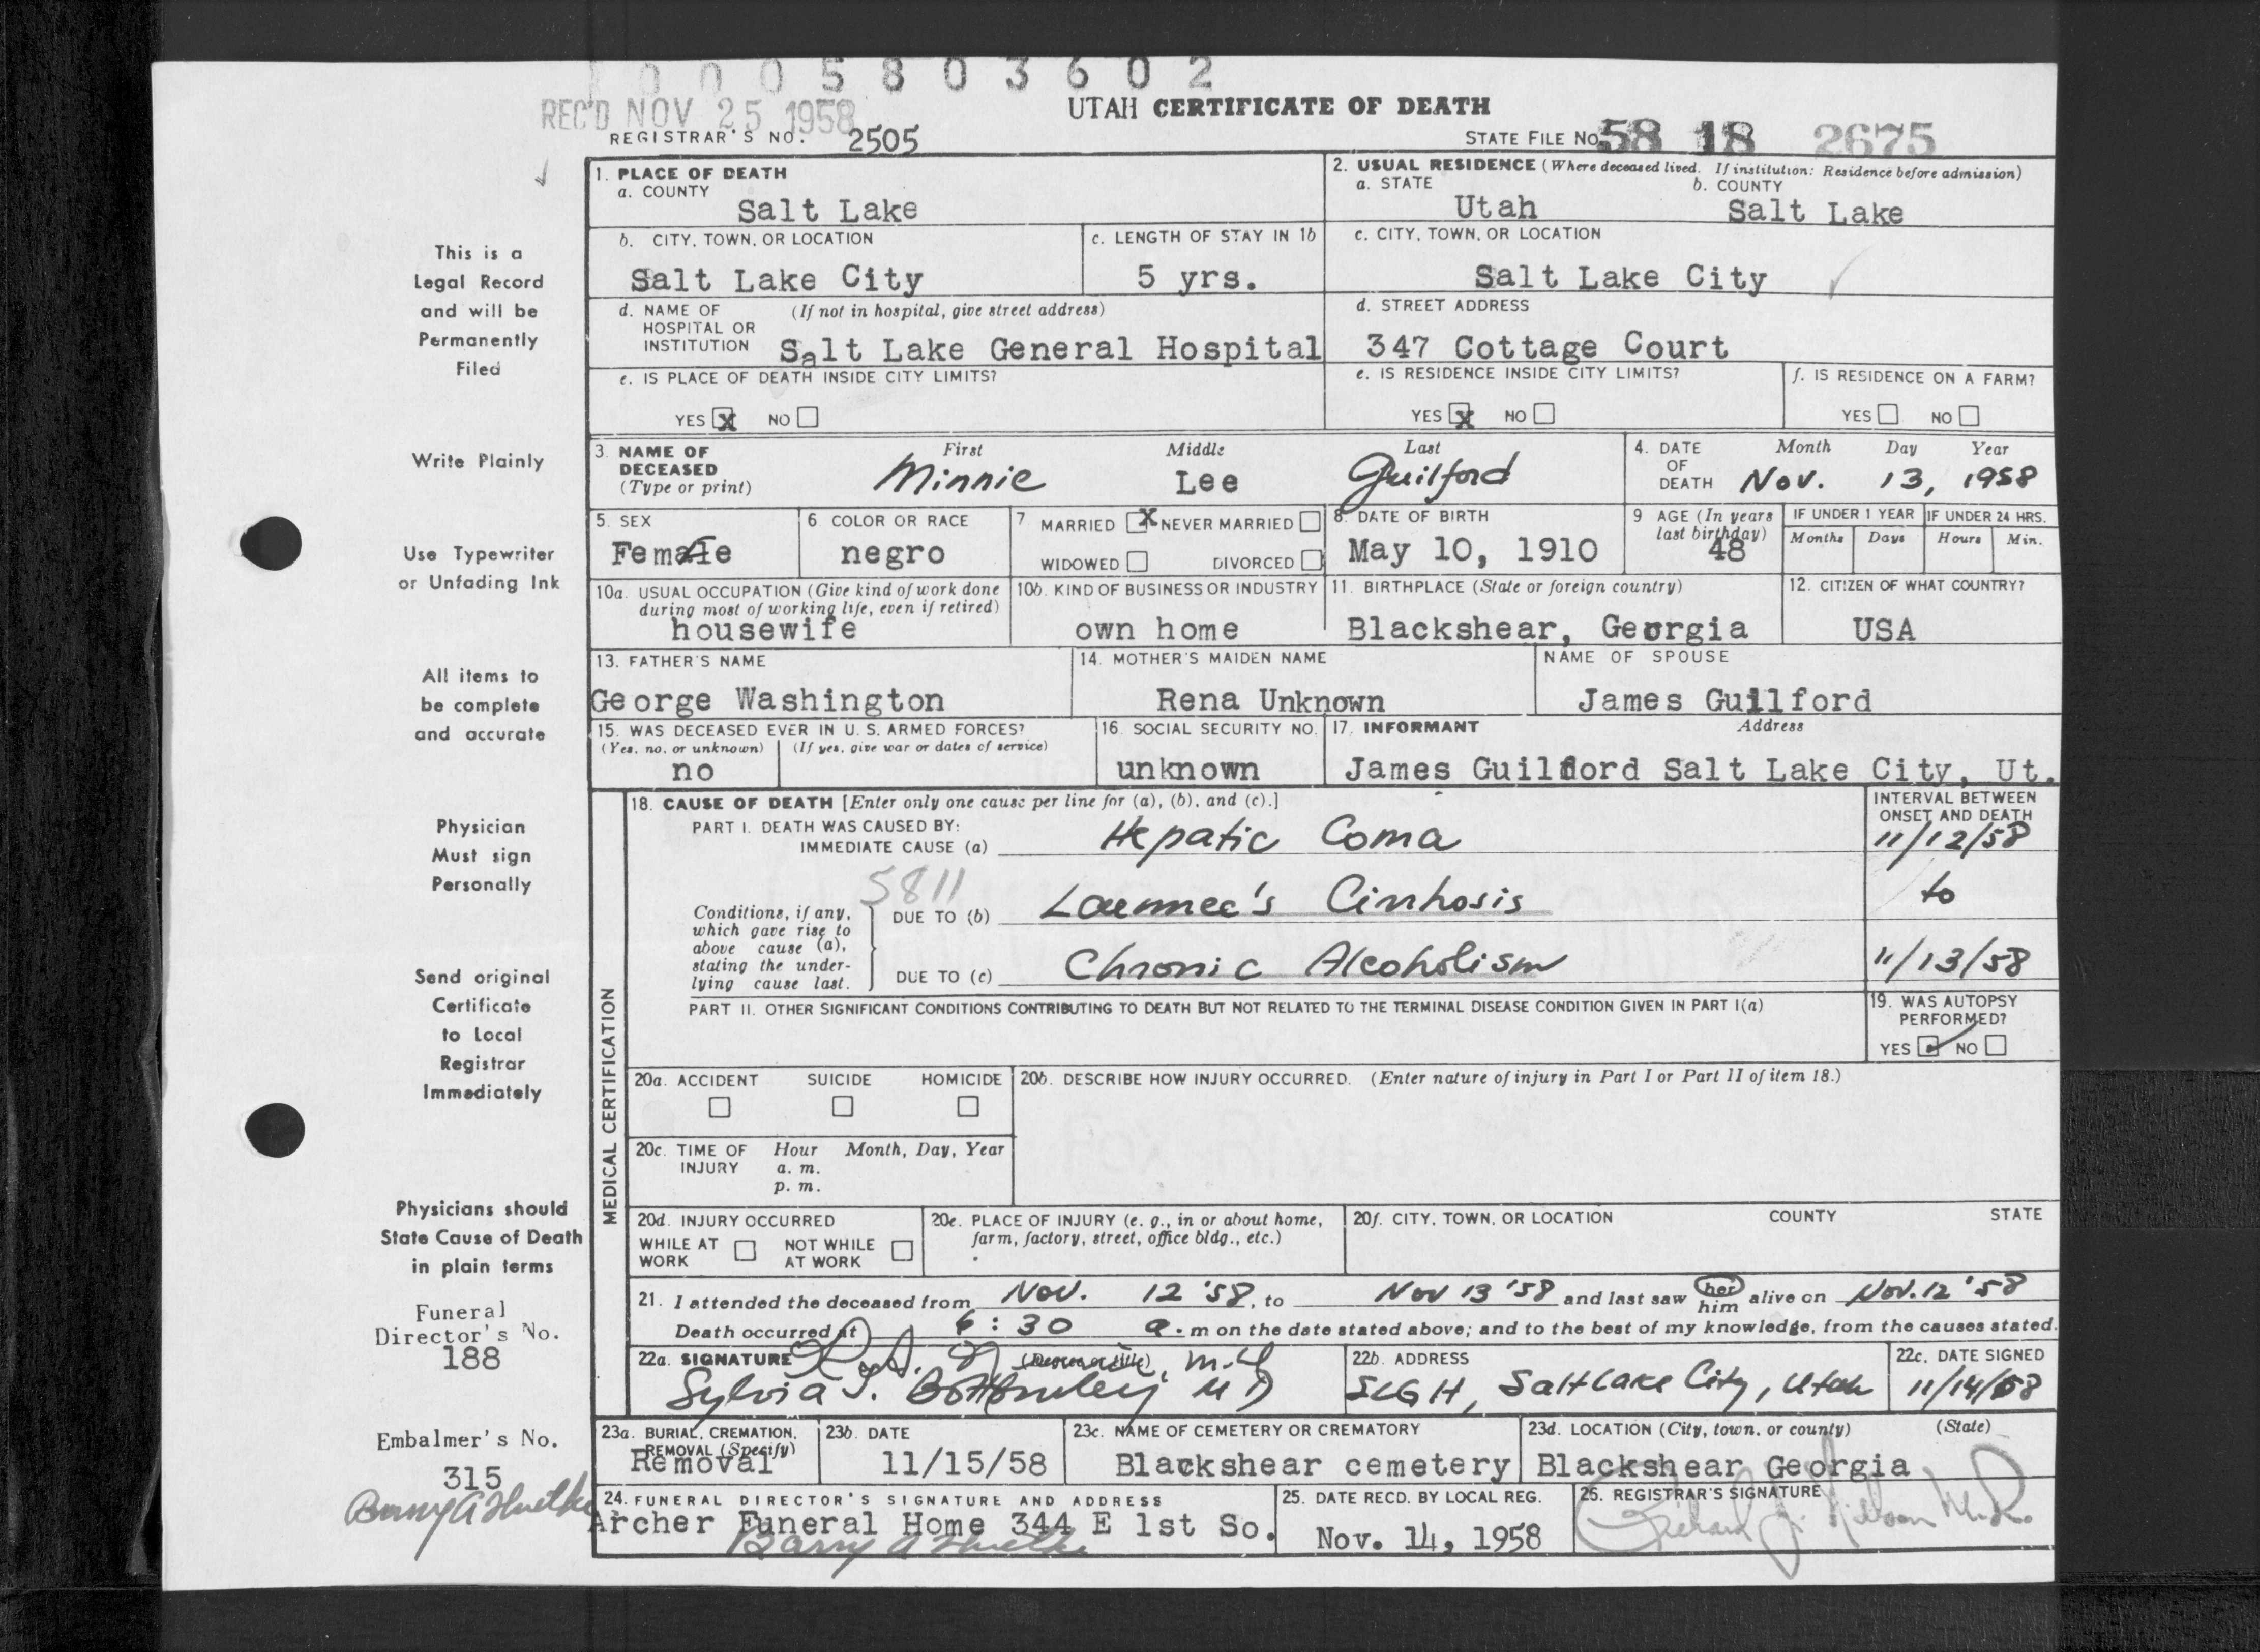 0 0 0 5 8 0 3 6 0 2
REC'D NOV 25 1958
UTAH CERTIFICATE OF DEATH
REGISTRAR'S NO. 2505
STATE FILE NO. 58 18 2675
This is a
Legal Record
and will be
Permanently
Filed
Write Plainly
Use Typewriter
or Unfading Ink
All items to
be complete
and accurate
Physician
Must sign
Personally
Send original
Certificate
to Local
Registrar
Immediately
Physicians should
State Cause of Death
in plain terms
Funeral
Director's No.
188
Embalmer's No.
315
1. PLACE OF DEATH
a. COUNTY
Salt Lake
2. USUAL RESIDENCE (Where deceased lived. If institution: Residence before admission)
a. STATE b. COUNTY
Utah Salt Lake
b. CITY, TOWN, OR LOCATION
Salt Lake City
c. LENGTH OF STAY IN 1b
5 yrs.
c. CITY, TOWN, OR LOCATION
Salt Lake City
d. NAME OF (If not in hospital, give street address)
HOSPITAL OR
INSTITUTION Salt Lake General Hospital
d. STREET ADDRESS
347 Cottage Court
e. IS PLACE OF DEATH INSIDE CITY LIMITS?
YES X NO
e. IS RESIDENCE INSIDE CITY LIMITS?
YES X NO
f. IS RESIDENCE ON A FARM?
YES NO
3. NAME OF
DECEASED
(Type or print)
First Middle Last
Minnie Lee Guilford
4. DATE Month Day Year
OF
DEATH Nov. 13, 1958
5. SEX
Female
6 COLOR OR RACE
negro
7 MARRIED X NEVER MARRIED
WIDOWED DIVORCED
8. DATE OF BIRTH
May 10, 1910
9 AGE (In years
last birthday)
48
IF UNDER 1 YEAR IF UNDER 24 HRS.
Months Days Hours Min.
10a. USUAL OCCUPATION (Give kind of work done
during most of working life, even if retired)
housewife
10b. KIND OF BUSINESS OR INDUSTRY
own home
11. BIRTHPLACE (State or foreign country)
Blackshear, Georgia
12. CITIZEN OF WHAT COUNTRY?
USA
13. FATHER'S NAME
George Washington
14. MOTHER'S MAIDEN NAME
Rena Unknown
NAME OF SPOUSE
James Guilford
15. WAS DECEASED EVER IN U. S. ARMED FORCES?
(Yes, no, or unknown) (If yes, give war or dates of service)
no
16. SOCIAL SECURITY NO.
unknown
17. INFORMANT Address
James Guilford Salt Lake City, Ut.
MEDICAL CERTIFICATION
18. CAUSE OF DEATH [Enter only one cause per line for (a), (b), and (c).]
PART I. DEATH WAS CAUSED BY:
IMMEDIATE CAUSE (a) Hepatic Coma
5811
Conditions, if any,
which gave rise to
above cause (a),
stating the under-
lying cause last.
DUE TO (b) Laennec's Cirrhosis
DUE TO (c) Chronic Alcoholism
INTERVAL BETWEEN
ONSET AND DEATH
11/12/58
to
11/13/58
PART II. OTHER SIGNIFICANT CONDITIONS CONTRIBUTING TO DEATH BUT NOT RELATED TO THE TERMINAL DISEASE CONDITION GIVEN IN PART I(a)
19. WAS AUTOPSY
PERFORMED?
YES NO
20a. ACCIDENT SUICIDE HOMICIDE
20b. DESCRIBE HOW INJURY OCCURRED. (Enter nature of injury in Part I or Part II of item 18.)
20c. TIME OF Hour Month, Day, Year
INJURY a. m.
p. m.
20d. INJURY OCCURRED
WHILE AT NOT WHILE
WORK AT WORK
20e. PLACE OF INJURY (e. g., in or about home,
farm, factory, street, office bldg., etc.)
20f. CITY, TOWN, OR LOCATION COUNTY STATE
21. I attended the deceased from Nov. 12 '58, to Nov 13 '58 and last saw her him alive on Nov. 12 '58
Death occurred at 6:30 a. m on the date stated above; and to the best of my knowledge, from the causes stated.
22a. SIGNATURE (Degree or title) M.D
Sylvia J. Bottomley MD
22b. ADDRESS
SLGH, Salt Lake City, Utah
22c. DATE SIGNED
11/14/58
23a. BURIAL, CREMATION,
REMOVAL (Specify)
Removal
23b. DATE
11/15/58
23c. NAME OF CEMETERY OR CREMATORY
Blackshear cemetery
23d. LOCATION (City, town, or county) (State)
Blackshear Georgia
24. FUNERAL DIRECTOR'S SIGNATURE AND ADDRESS
Archer Funeral Home 344 E 1st So.
25. DATE RECD. BY LOCAL REG.
Nov. 14, 1958
26. REGISTRAR'S SIGNATURE